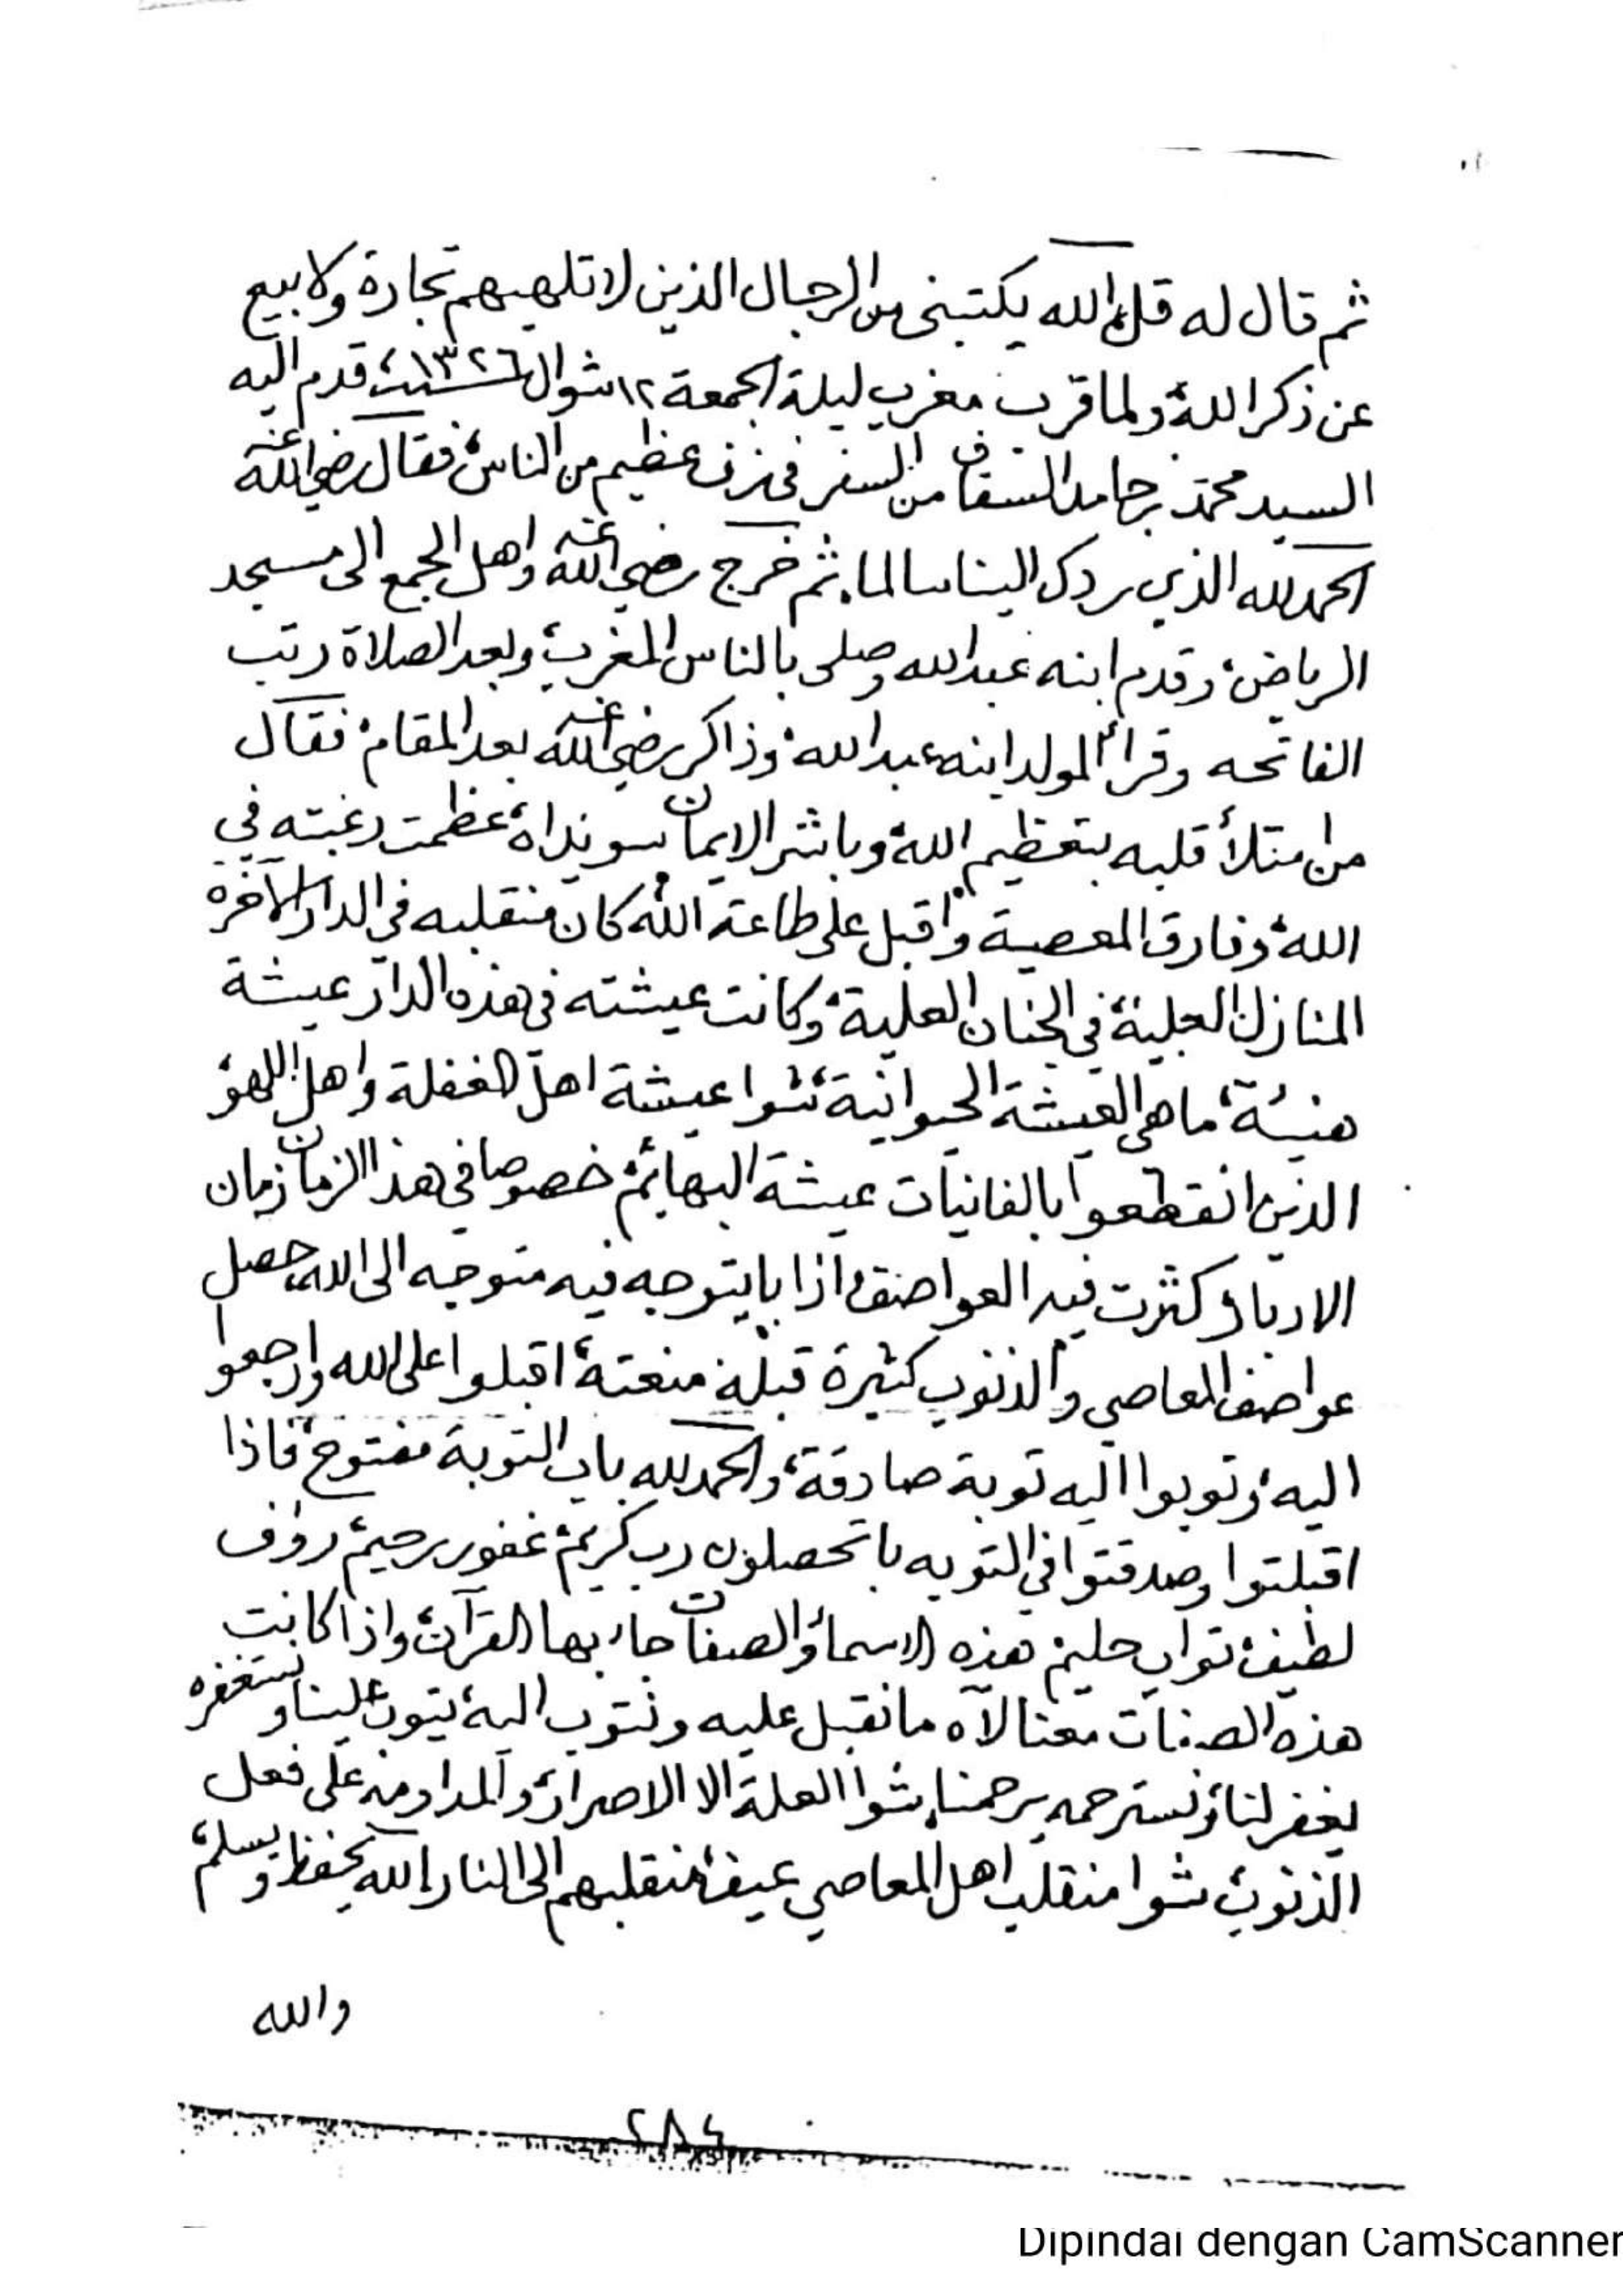 ثم قال له قل الله يكتبني من الرجال الذين لا تلهيهم تجارة ولا بيع
عن ذكر الله، ولما قرب مغرب ليلة الجمعة ١٢ شوال سنة ١٣٢٦، قدم اليه
السيد محمد بن حامد السقاف من السفر في عظيم من الناس، فقال رضي الله عنه
الحمد لله الذي ردك الينا سالما، ثم خرج رضي الله عنه واهل الجمع الى مسجد
الرياض، وقدم ابنه عبد الله وصلى بالناس المغرب، وبعد الصلاة رتب
الفاتحه وقرأ المولد ابنه عبد الله، وذاكر رضي الله عنه بعد المقام، فقال
من امتلأ قلبه بتعظيم الله، وباشر الايمان سويداه، عظمت رغبته في
الله، وفارق المعصية واقبل على طاعة الله، كان منقلبه في الدار الآخرة
المنازل العلية، في الجنان العلية، وكانت عيشته في هذه الدار عيشة
هنيئة، ما هي العيشة الحيوانية، شوا عيشة اهل الغفلة واهل اللهو،
الذين انقطعوا بالفانيات عيشة البهائم، خصوصا في هذا الزمان زمان
الادبار كثرت فيه العواصف، اذا با يتوجه فيه متوجه الى الله، حصل
عواصف المعاصي والذنوب كثيرة قبله منعته، اقبلوا على الله وارجعوا
اليه، وتوبوا اليه توبة صادقة، والحمد لله باب التوبة مفتوح، فاذا
اقبلتوا وصدقتوا في التوبه با تحصلون رب كريم، غفور رحيم، رؤف
لطيف، تواب حليم، هذه الاسماء والصفات جاء بها القرآن، واذا كانت
هذه الصفات معنا لآه ما نقبل عليه ونتوب اليه، يتوب علينا، ونستغفره
يغفر لنا، ونسترحمه يرحمنا، شوا العلة الا الاصرار، والمداومه على فعل
الذنوب، شوا منقلب اهل المعاصي عيف، منقلبهم الى النار، الله يحفظ ويسلم،
والله
٢٨٤
Dipindai dengan CamScanner